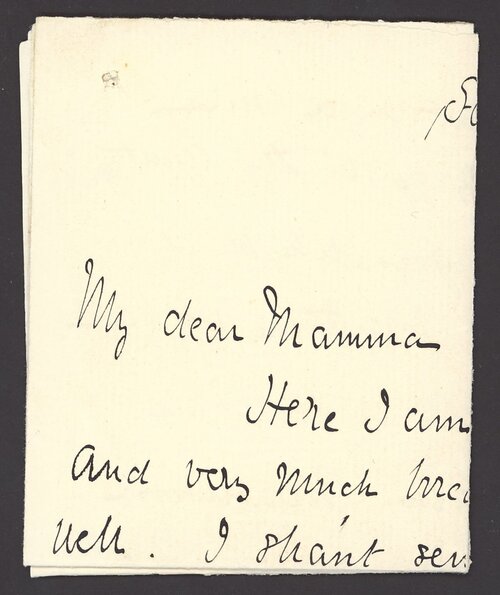 My dear Mamma
Here I am
And very much
well. I shan't